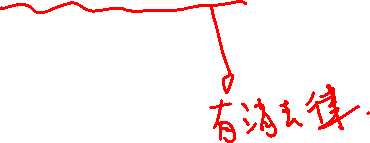 有消去律.